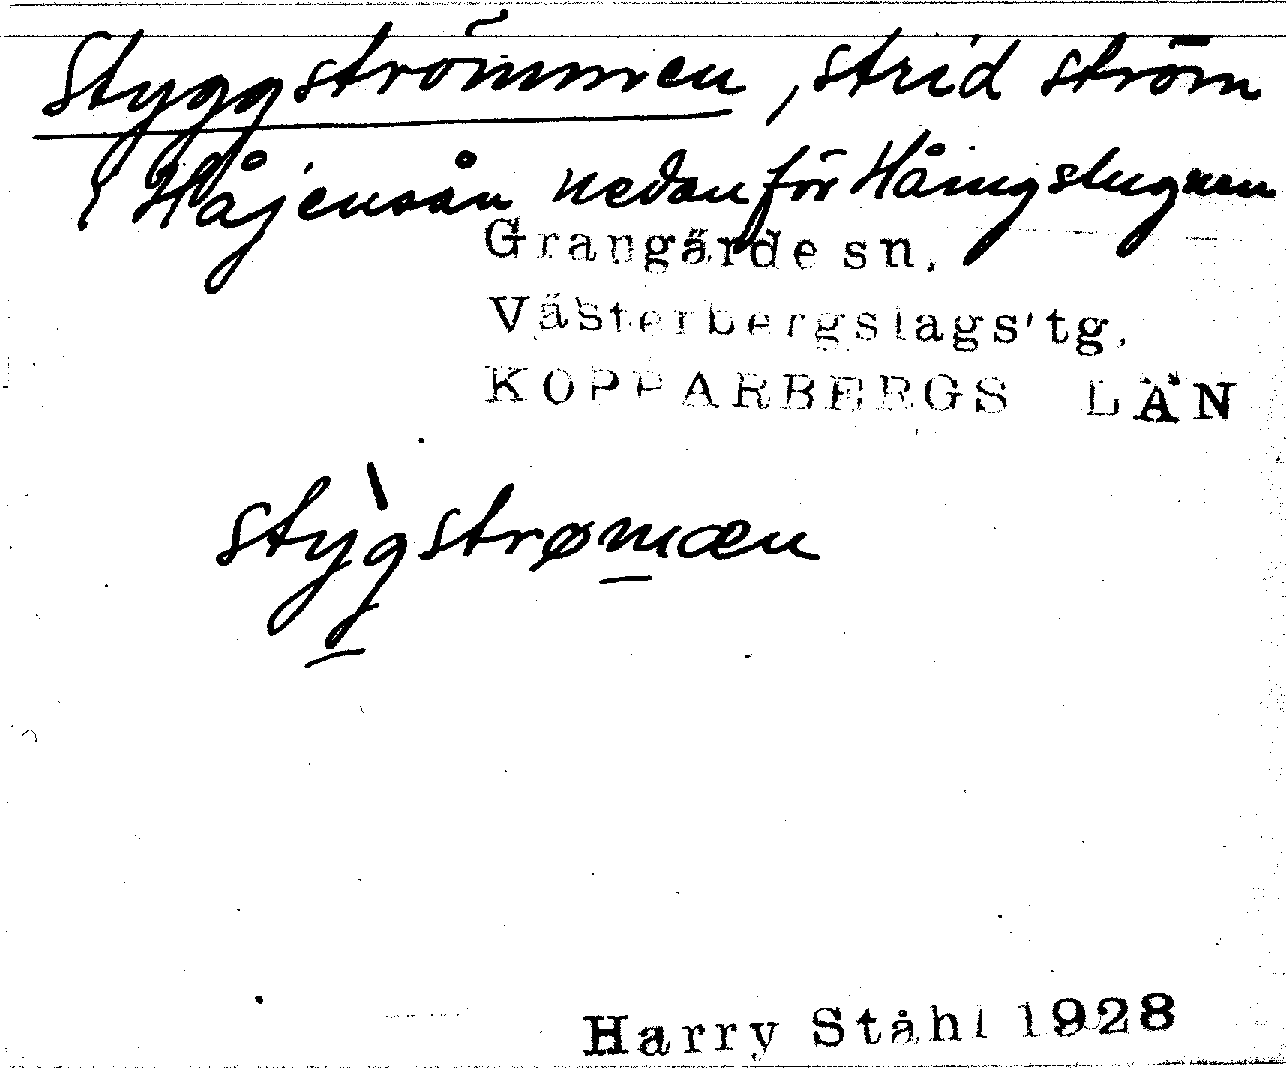 Styggströmmen, strid ström
i Håjensån nedanför Håingslugnen
Grangärde sn.
Västerbergslags tg.
KOPPARBERGS LÄN
stỳgstrømæn
Harry Ståhl 1928